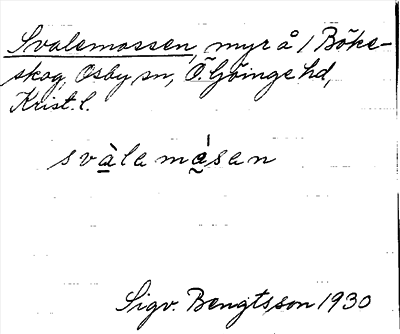 Svalemossen, myr å 1 Böke-
skog, Osby sn, Ö. Göinge hd,
Krist. l.
svàlemåsen
Sigv. Bengtsson 1930